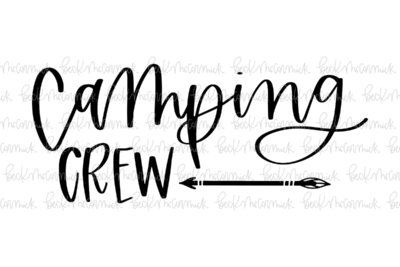 Camping
CREW